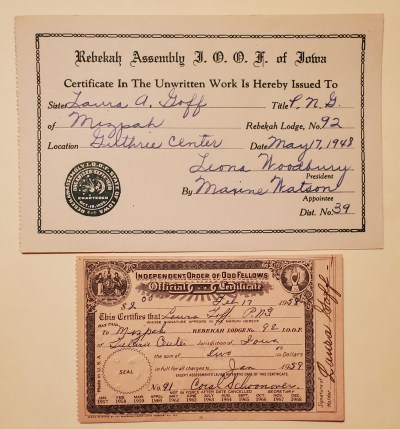 Rebekah Assembly I. O. O. F. of Iowa
Certificate In The Unwritten Work Is Hereby Issued To
Sister Laura A. Goff Title P. N. G.
of Mizpah Rebekah Lodge, No. 92
Location Guthrie Center Date May 17, 1948
Leona Woodbury
President
By Maxine Watson
Appointee
Dist. No. 39
INDEPENDENT ORDER OF ODD FELLOWS
Official Certificate
$2 00 Feb 17 1958
This Certifies that Laura Goff P.N.G
WHOSE SIGNATURE APPEARS IN THE MARGIN HEREOF
HAS PAID TO Mizpah REBEKAH LODGE No. 92 I.O.O.F.
of Guthrie Center Jurisdiction of Iowa
the sum of Two Dollars
in full for all charges to Jan 1959
SEAL
No. 91 Coral Schoonover
SECRETARY
NOT IN FORCE AFTER DATE CANCELLED
Made in U.S.A.
Signature of Member Laura Goff